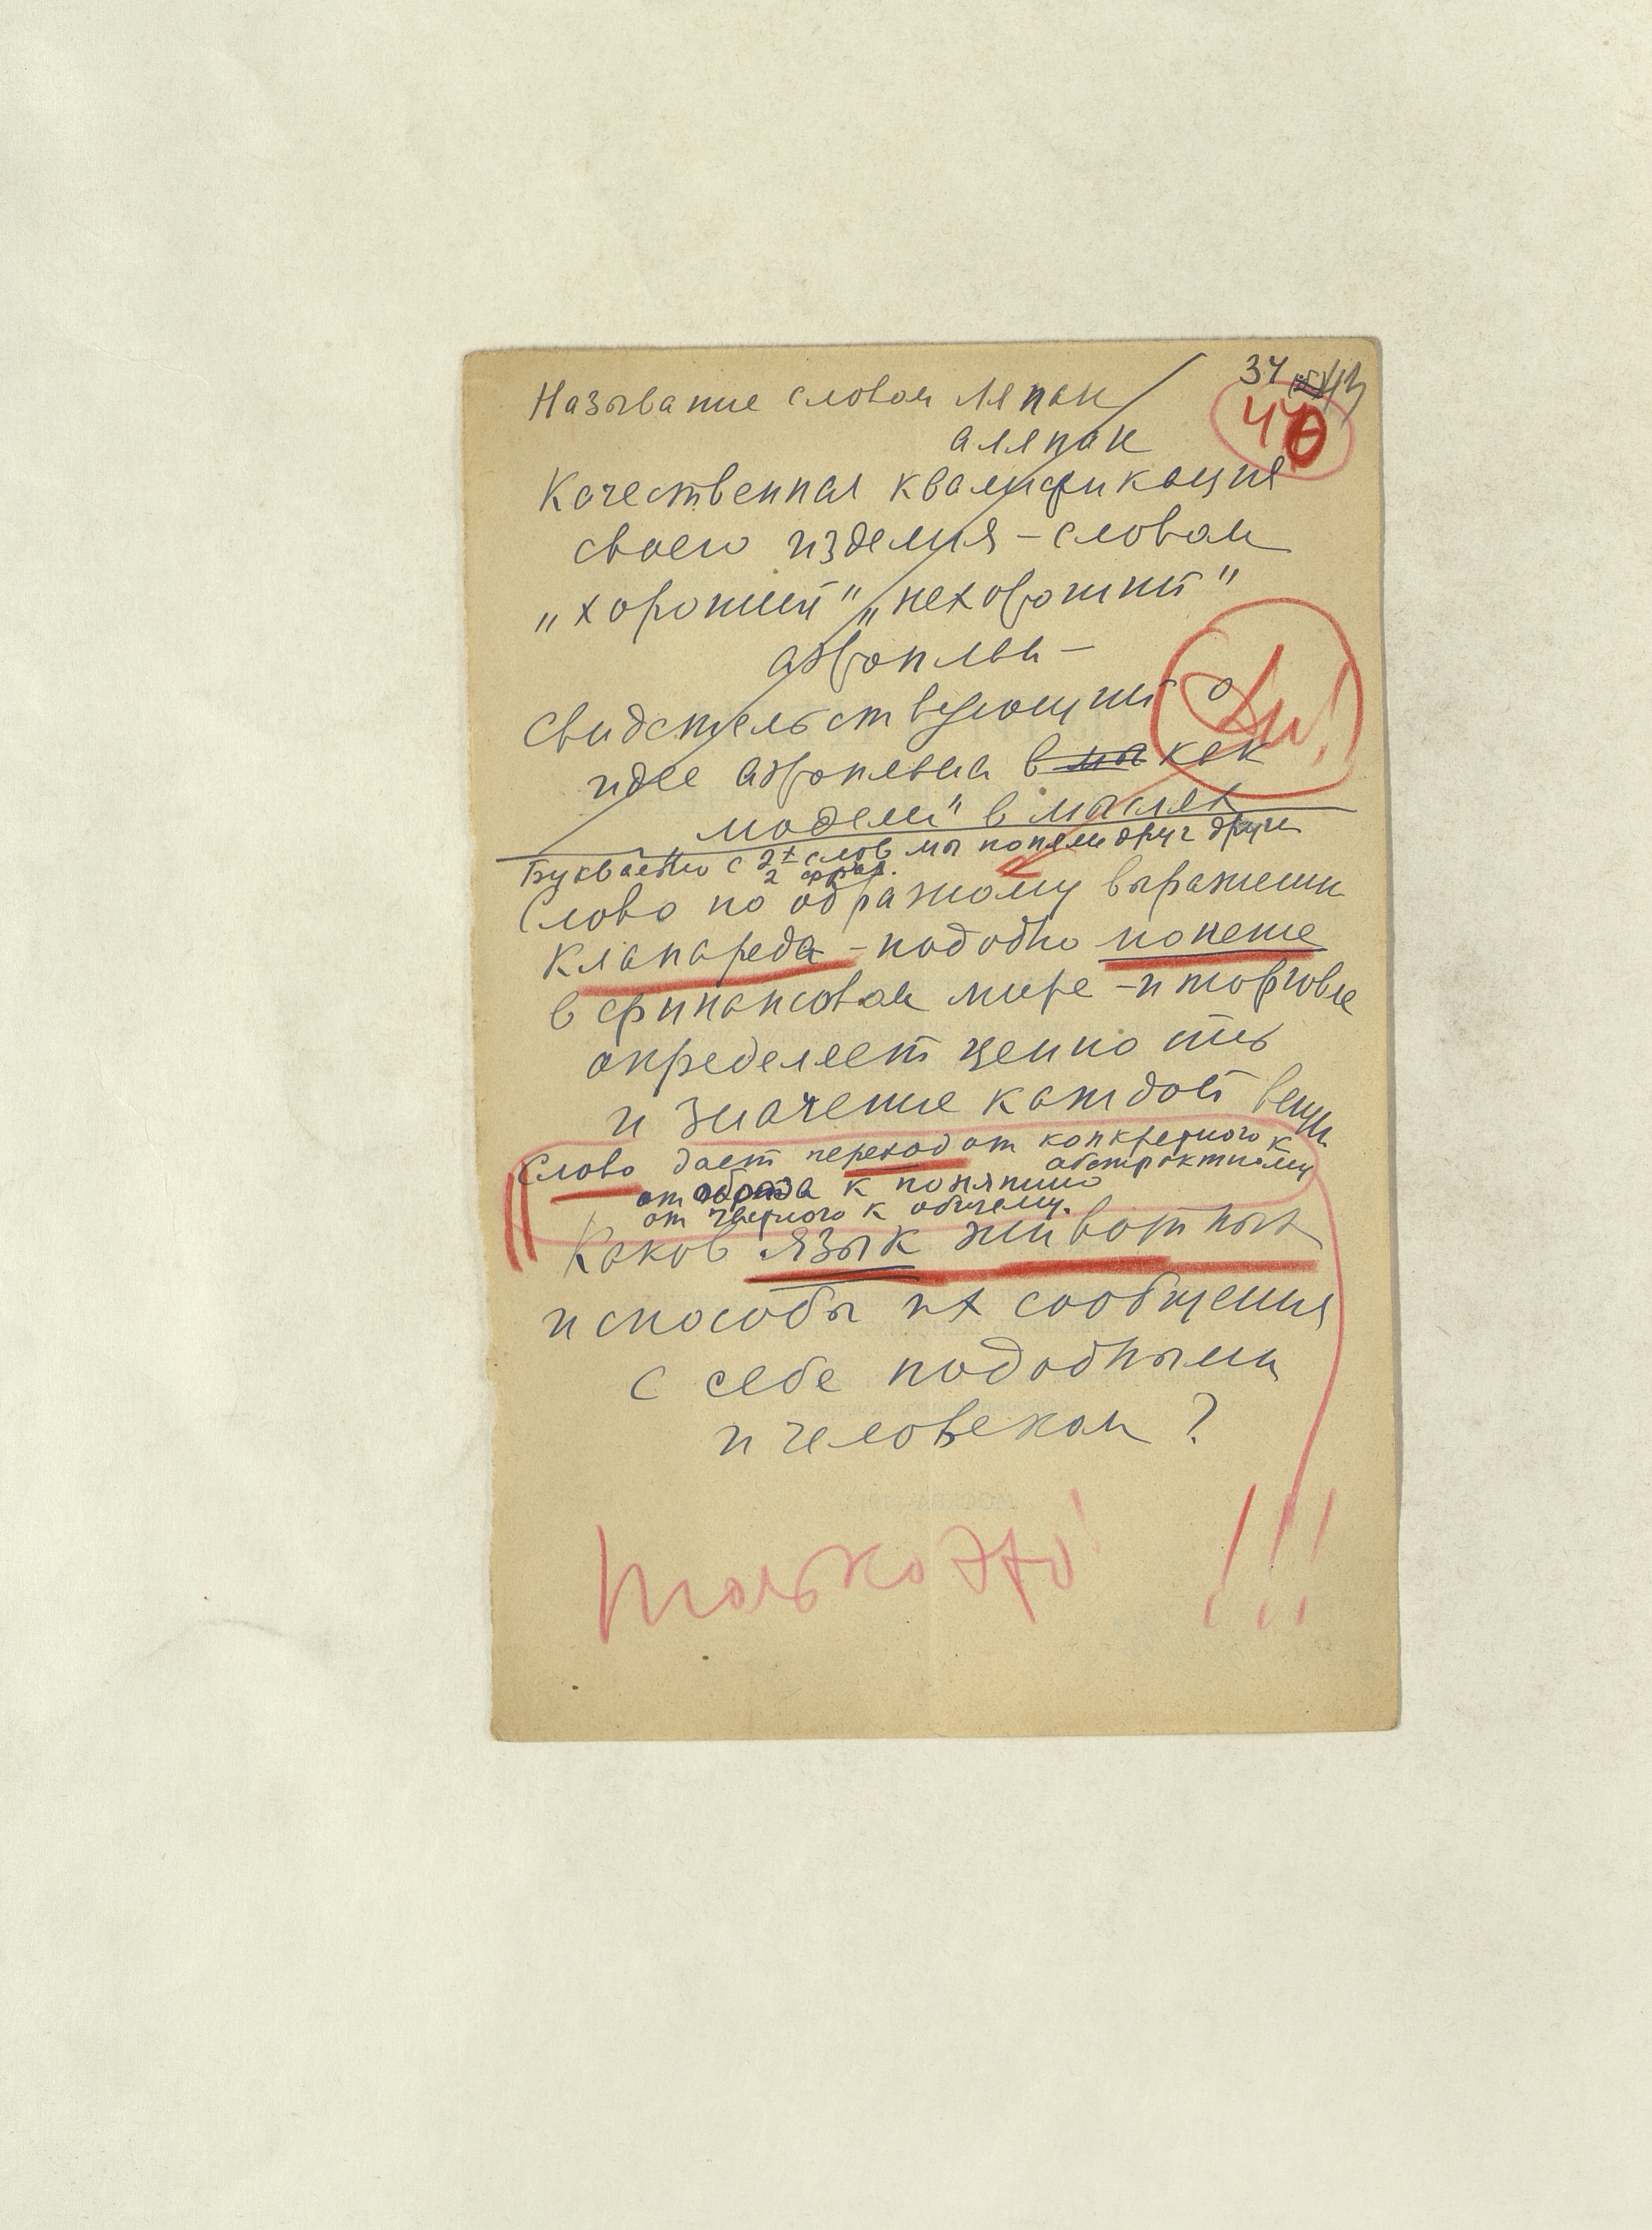 34
440
Называние словом ляпан
аляпан
Качественная квалификация
своего изделия – словом
„хороший" „нехороший"
аэроплан –
свидетельствующий о
идее аэроплана в мы как
модели" в мыслях
Буквально с 2х слов мы поняли друг друга
2 фраз.
Слово по образному выражению
Клапареда – подобно монете
в финансовом мире – и торговле
определяет ценность
и значение каждой вещи
Слово дает переход от конкретного к
абстрактному
от образа к понятию
от частного к общему.
Каков язык животных
и способы их сообщения
с себе подобными
и человеком?
только это!
!!!